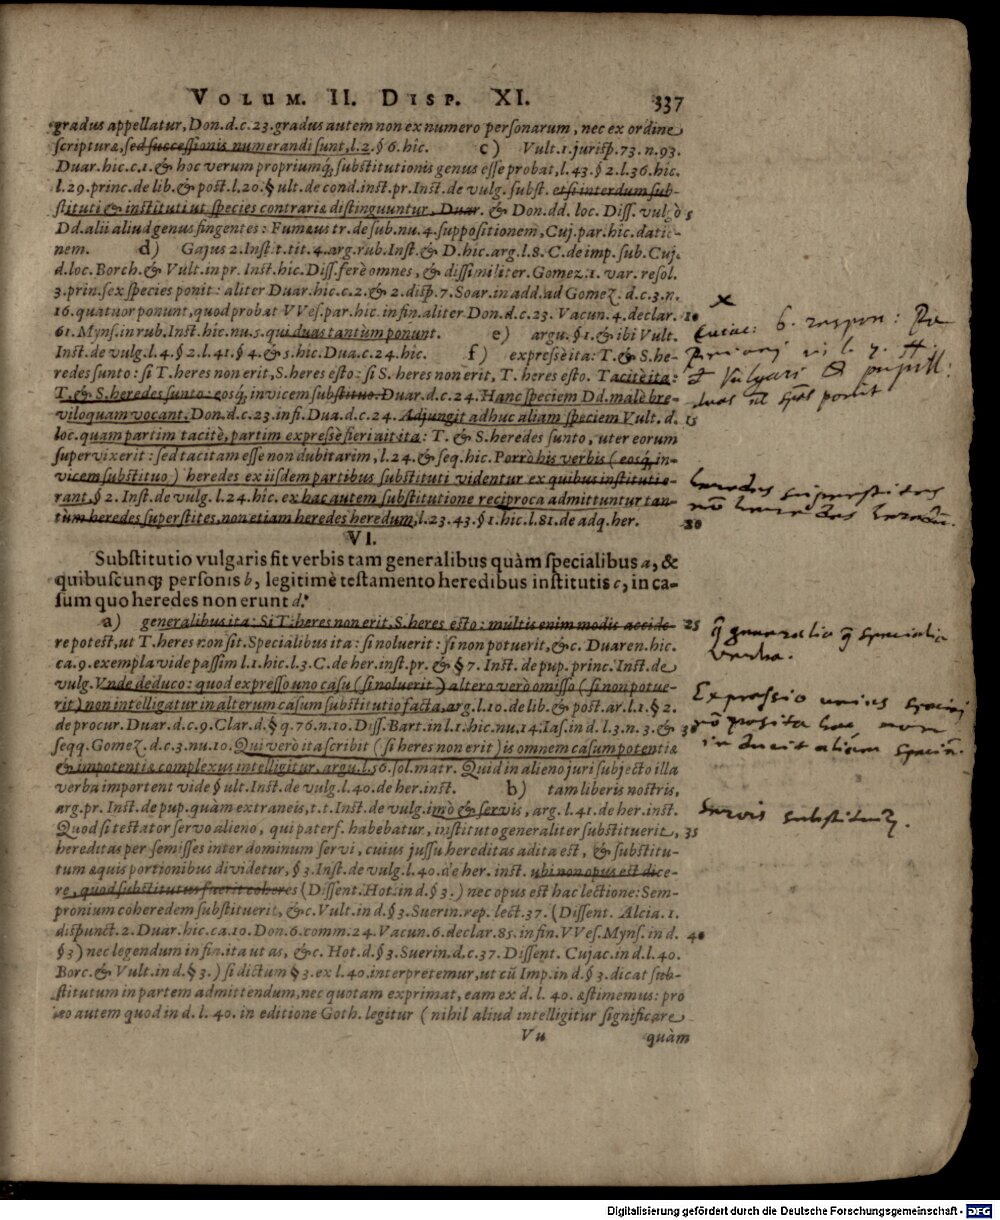 VOLUM. II. DISP. XI. 337
gradus appellatur, Don.d.c.23.gradus autem non ex numero personarum, nec ex ordine
scripturæ, sed successionis numerandi sunt, l.2.§ 6.hic. c) Vult.1.jurisp.73.n.93.
Duar.hic.c.1.& hoc verum propriumq́; substitutionis genus esse probat, l.43.§ 2.l.36.hic.
l.29.princ.de lib.& post.l.20.§ ult.de cond.inst.pr.Inst.de vulg.subst. etsi interdum sub-
stituti & instituti ut species contrariæ distinguuntur, Duar. & Don.dd. loc. Diss. vulgò 5
Dd.alii aliud genus fingentes: Fumæus tr.de sub.nu.4.suppositionem, Cuj.par.hic.datio-
nem. d) Gajus 2.Inst.t.tit.4.arg.rub.Inst.& D.hic.arg.l.8.C.de imp.sub.Cuj.
d.loc.Borch.& Vult.in pr. Inst.hic.Diss.ferè omnes, & dissimiliter.Gomez.1. var.resol.
3.prin.sex species ponit: aliter Duar.hic.c.2.& 2.disp.7.Soar.in add.ad Gomez.d.c.3.n.
16.quatuor ponunt, quod probat VVes.par.hic.in fin.aliter Don.d.c.23.Vacun.4.declar. 10
61.Myns.in rub.Inst.hic.nu.5.qui duas tantum ponunt. e) argu.§ 1.& ibi Vult.
Inst.de vulg.l.4.§ 2.l.41.§ 4.& 5.hic.Dua.c.24.hic. f) expressè ita: T.& S.he-
redes sunto: si T.heres non erit, S.heres esto: si S. heres non erit, T. heres esto. Tacitè ita:
T.& S.heredes sunto: eosq́; invicem substituo. Duar.d.c.24. Hanc speciem Dd.malè bre-
viloquam vocant. Don.d.c.23.infi.Dua.d.c.24. Adjungit adhuc aliam speciem Vult.d. 15
loc.quam partim tacitè, partim expressè fieri ait ita: T. & S.heredes sunto, uter eorum
supervixerit: sed tacitam esse non dubitarim, l.24.& seq.hic. Porrò his verbis (eosq́; in-
vicem substituo) heredes ex iisdem partibus substituti videntur ex quibus instituti e-
rant, § 2. Inst.de vulg.l.24.hic. ex hac autem substitutione reciproca admittuntur tan-
tùm heredes superstites, non etiam heredes heredum, l.23.43.§ 1.hic.l.81.de adq.her. 20
VI.
Substitutio vulgaris fit verbis tam generalibus quàm specialibus a, &
quibuscunq; personis b, legitimè testamento heredibus institutis c, in ca-
sum quo heredes non erunt d.
a) generalibus ita: Si T.heres non erit, S.heres esto: multis enim modis accide- 25
re potest, ut T.heres non sit. Specialibus ita: si noluerit: si non potuerit, &c. Duaren.hic.
ca.9.exempla vide passim l.1.hic.l.3.C.de her.inst.pr.& § 7. Inst.de pup.princ.Inst.de
vulg. Vnde deduco: quod expresso uno casu (si noluerit) altero verò omisso (si non potue-
rit) non intelligatur in alterum casum substitutio facta, arg.l.10.de lib.& post.ar.l.1.§ 2.
de procur.Duar.d.c.9.Clar.d.§ q.76.n.10.Diss.Bart.in l.1.hic.nu.14.Ias.in d.l.3.n.3.& 30
seqq.Gomez.d.c.3.nu.10. Qui verò ita scribit (si heres non erit) is omnem casum potentiæ
& impotentiæ complexus intelligitur, argu.l.56.sol.matr. Quid in alieno juri subjecto illa
verba importent vide § ult.Inst.de vulg.l.40.de her.inst. b) tam liberis nostris,
arg.pr. Inst.de pup.quàm extraneis, t.t.Inst.de vulg.imò & servis, arg.l.41.de her.inst.
Quod si testator servo alieno, qui paterf. habebatur, instituto generaliter substituerit, 35
hereditas per semisses inter dominum servi, cuius jussu hereditas adita est, & substitu-
tum æquis portionibus dividetur, § 3.Inst.de vulg.l.40.de her. inst. ubi non opus est dice-
re, quod substitutus fuerit coheres (Dissent.Hot.in d.§ 3.) nec opus est hac lectione: Sem-
pronium coheredem substituerit, &c.Vult.in d.§ 3.Suerin.rep.lect.37.(Dissent. Alcia.1.
dispunct.2.Duar.hic.ca.10.Don.6.comm.24.Vacun.6.declar.85.in fin.VVes.Myns.in d. 40
§ 3) nec legendum in fin.ita ut as, &c. Hot.d.§ 3.Suerin.d.c.37. Dissent. Cujac.in d.l.40.
Borc.& Vult in d.§ 3.) si dictum § 3.ex l.40.interpretemur, ut cũ Imp.in d.§ 3.dicat sub-
stitutum in partem admittendum, nec quotam exprimat, eam ex d. l. 40. æstimemus: pro
eo autem quod in d. l. 40. in editione Goth. legitur (nihil aliud intelligitur significare
Vu quàm
heredes superstites
heredes heredum.
generalia specialia
verba.
Expressio unius
posita non
speciem.
Servis
Digitalisierung gefördert durch die Deutsche Forschungsgemeinschaft - DFG